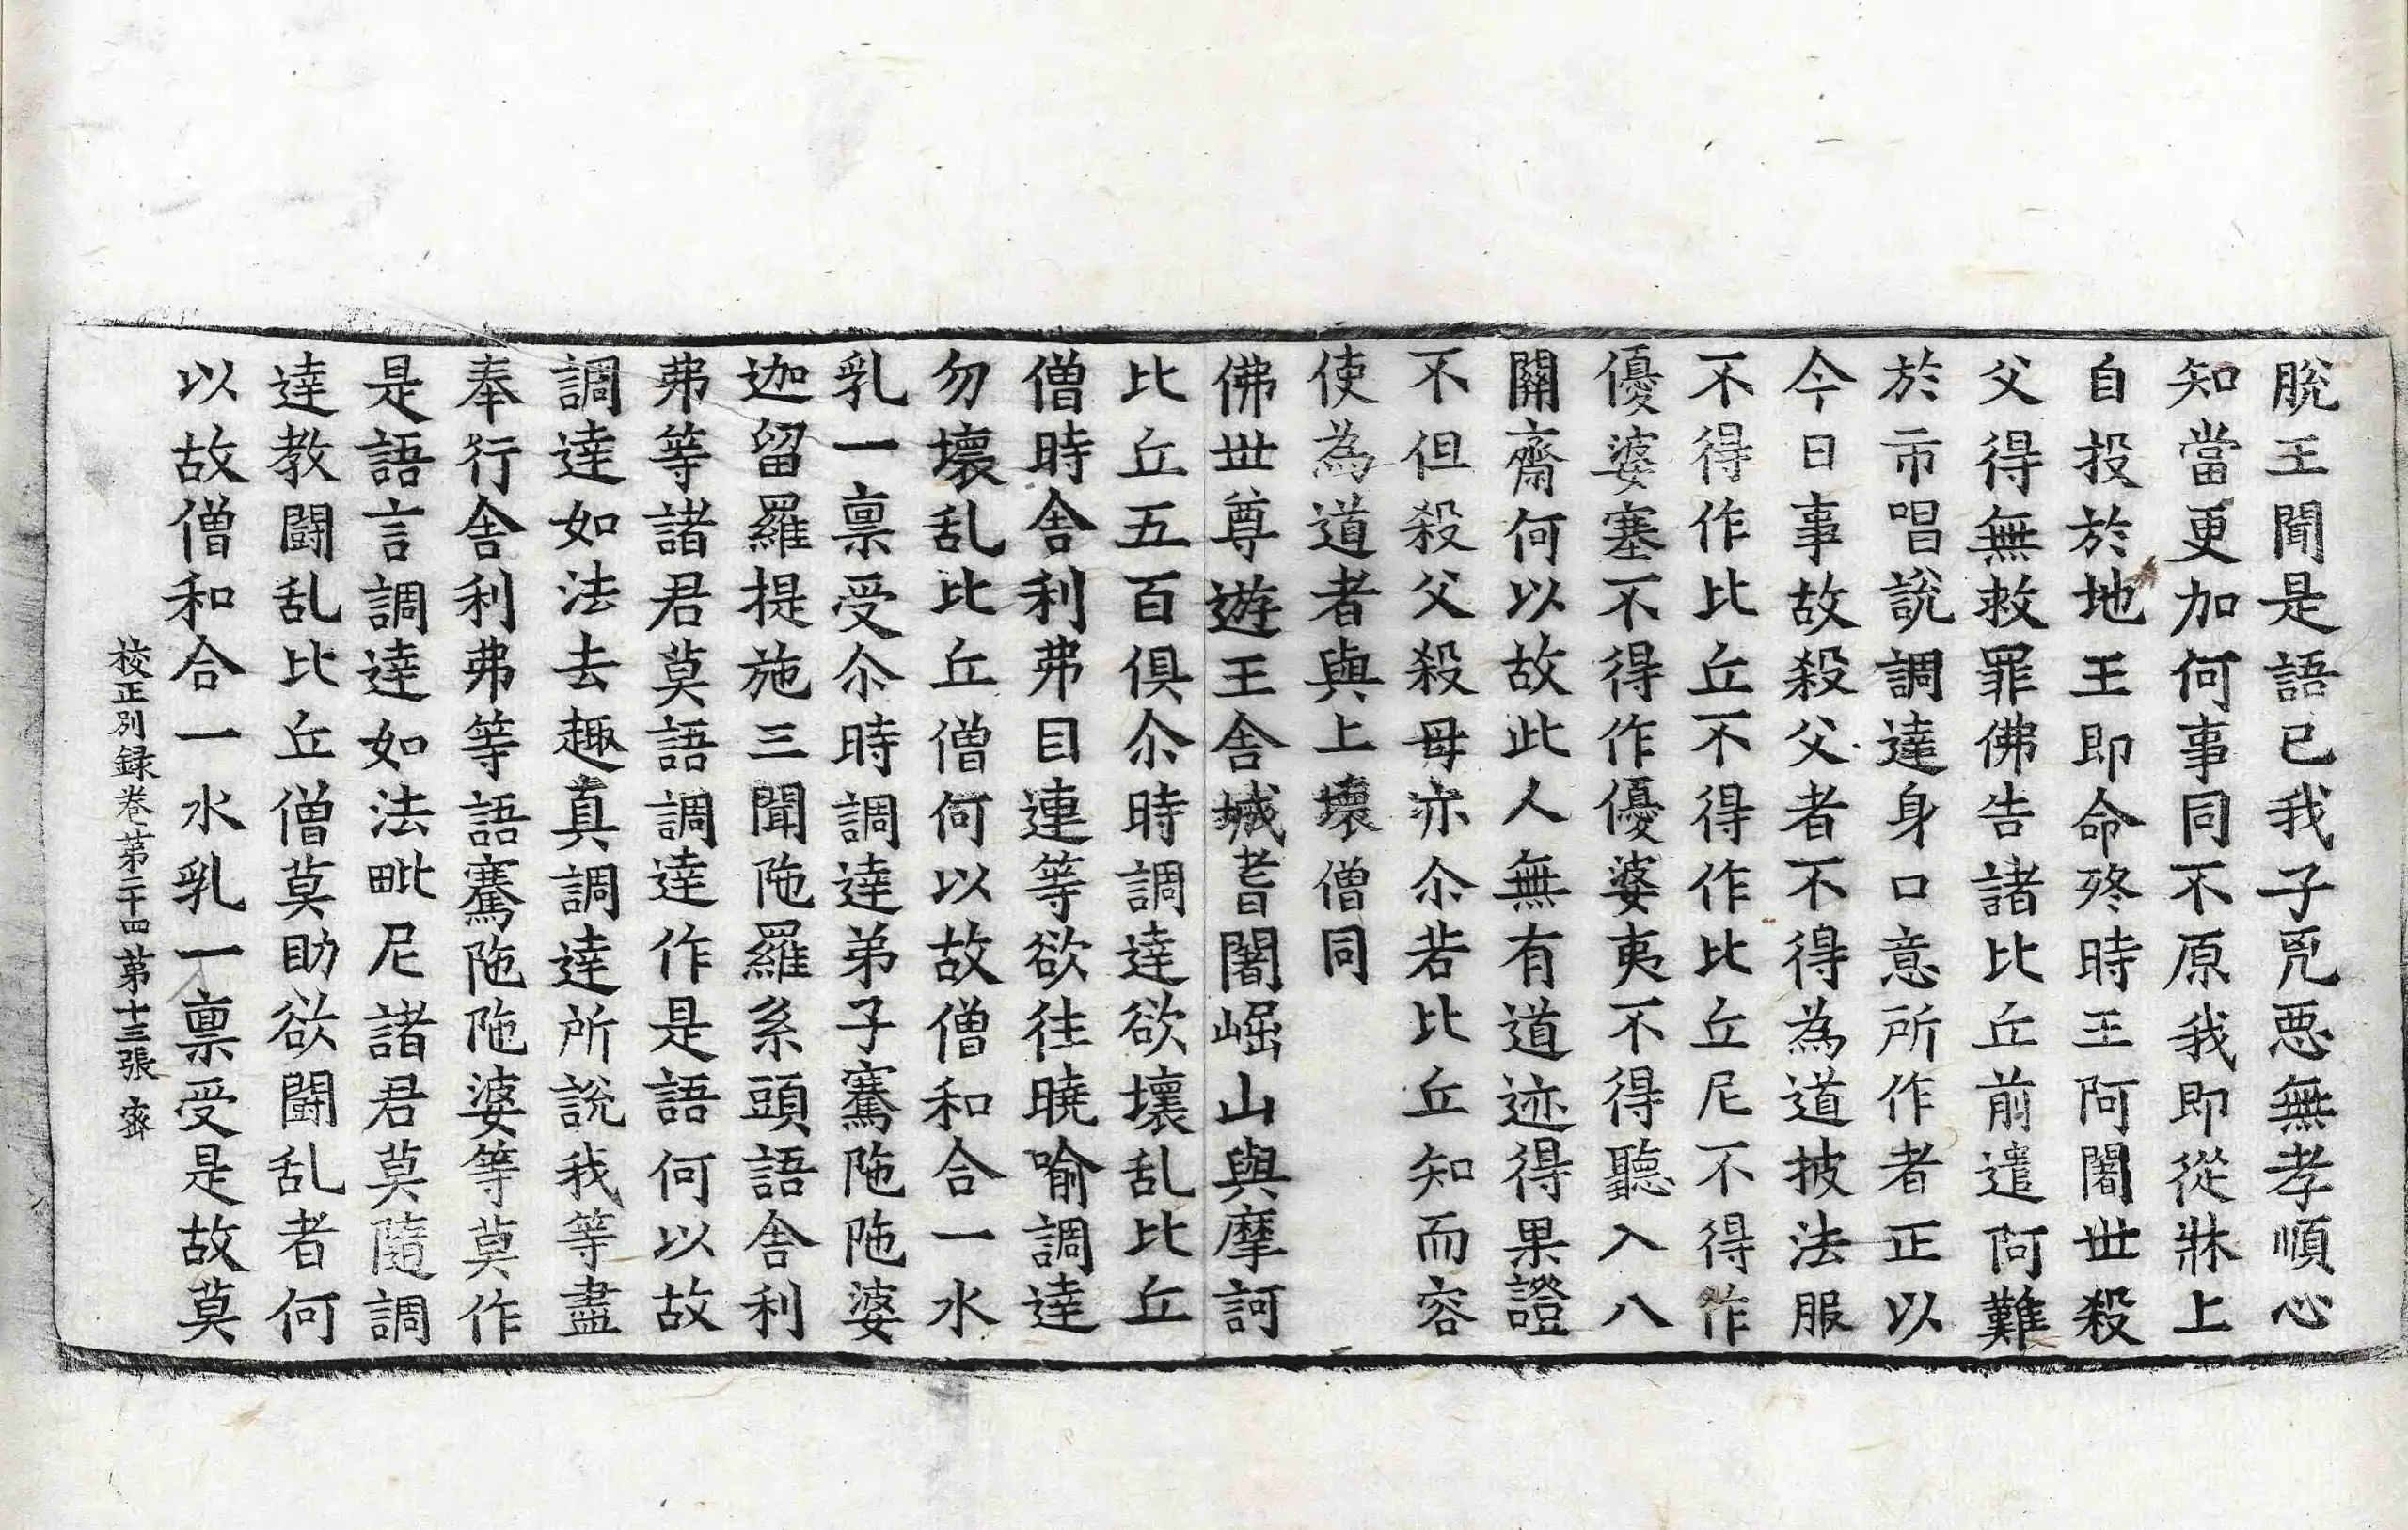 脫王聞是語已我子兇惡無孝順心
知當更加何事同不原我即從牀上
自投於地王即命終時王阿闍世殺
父得無救罪佛告諸比丘前遣阿難
於市唱說調達身口意所作者正以
今日事故殺父者不得為道披法服
不得作比丘不得作比丘尼不得作
優婆塞不得作優婆夷不得聽入八
關齋何以故此人無有道迹得果證
不但殺父殺母亦尒若比丘知而容
使為道者與上壞僧同
佛世尊遊王舍城耆闍崛山與摩訶
比丘五百俱尒時調達欲壞乱比丘
僧時舍利弗目連等欲往曉喻調達
勿壞乱比丘僧何以故僧和合一水
乳一稟受尒時調達弟子騫陁陁婆
迦留羅提施三聞陁羅系頭語舍利
弗等諸君莫語調達作是語何以故
調達如法去趣真調達所說我等盡
奉行舍利弗等語騫陁陁婆等莫作
是語言調達如法毗尼諸君莫隨調
達教鬪乱比丘僧莫助欲鬪乱者何
以故僧和合一水乳一稟受是故莫
校正別録卷第二十四第十三張 齊